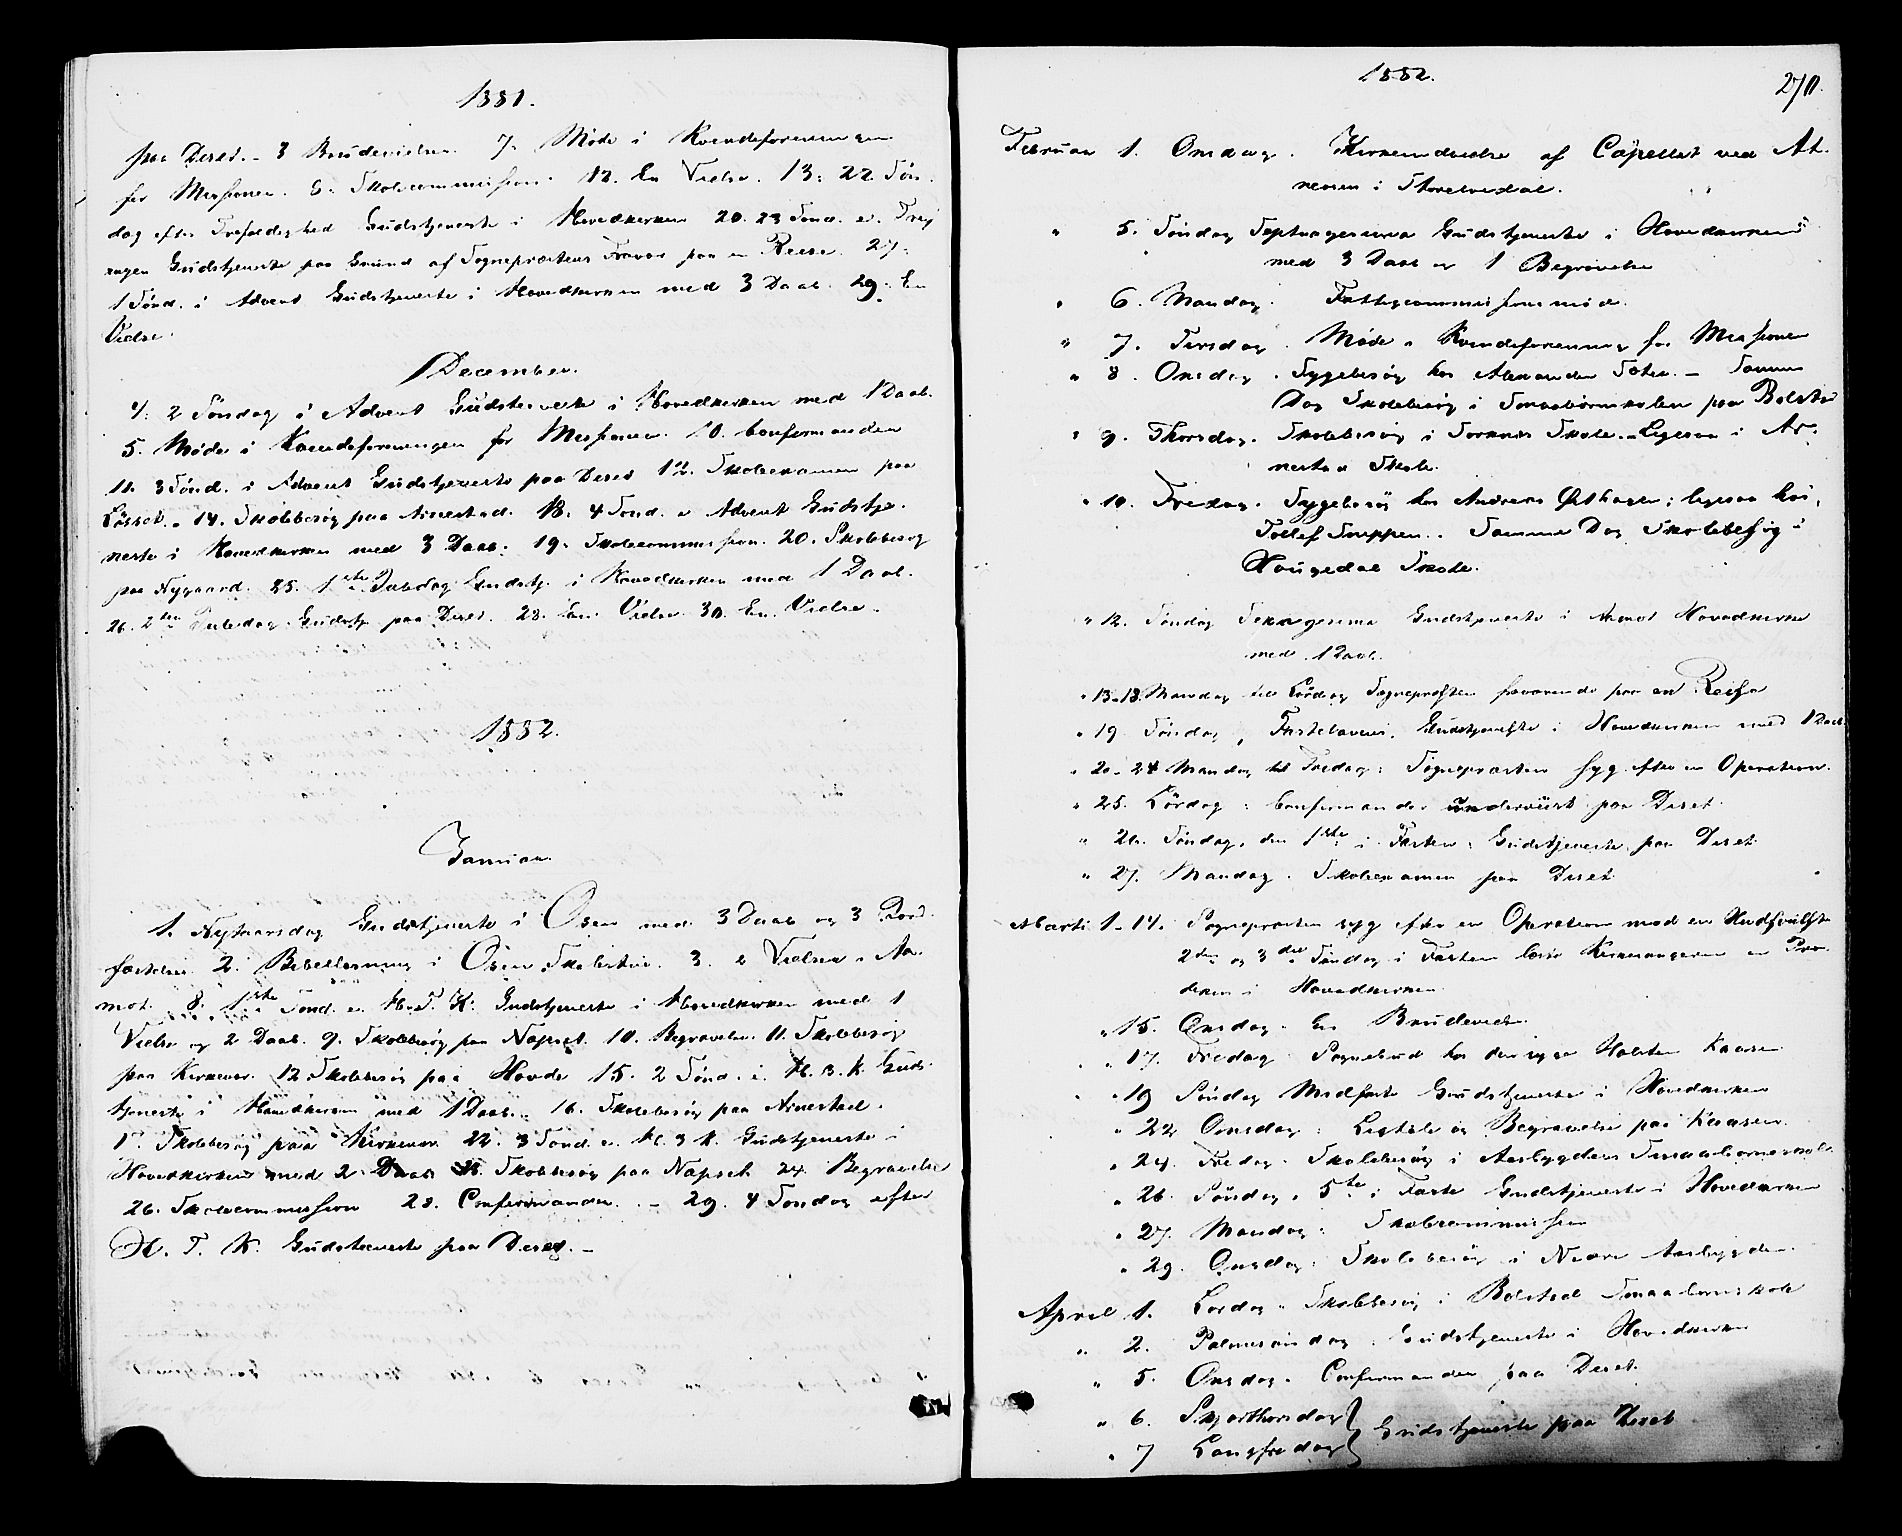 1881.
paa Deset. - 3 Brudevielser. 7. Møde i Kvindeforeningen
for Missionen. 8. Skolecommission. 12. En Vielse. 13. 22 Søn-
dag efter Trefoldighed Gudstjeneste i Hovedkirken 20. 23 Sønd. e. Tref
ingen Gudstjeneste paa Grund af Sognepræstens Fravær paa en Reise. 27.
1 Sønd. i Advent Gudstjeneste i Hovedkirken med 3 Daab. 29. En
Vielse.
December.
4. 2 Søndag i Advent Gudstjeneste i Hovedkirken med 1 Daab.
5. Møde i Kvindeforeningen for Missionen. 10. Confirmanden
11. 3 Sønd. i Advent Gudstjeneste paa Deset 12. Skoleexamen paa
Løsset. - 14. Skolebesøg paa Arnestad. 18. 4 Sønd. i Advent Gudstje-
neste i Hovedkirken med 3 Daab. 19. Skolecommission. 20. Skolebesøg
paa Nygaard. 25. 1ste Juledag Gudstj. i Hovedkirken med 1 Daab.
26. 2den Juledag. Gudstj. paa Deset. 28. En Vielse 30. En Vielse.
1882.
Januar.
1. Nytaarsdag Gudstjeneste i Osen med 3 Daab og 3 Jord-
fæstelser 2. Bibellæsning i Osen Skolestue. 3. Vielser i Aa-
mot. 8. 1ste Sønd. e. H. 3 K. Gudstjeneste i Hovedkirken med 1
Vielse og 2 Daab. 9. Skolebesøg paa Nøpset. 10. Begravelse. 11. Skolebesøg
paa Kirkevær. 12. Skolebesøg paa Hovde 15. 2 Sønd. e. H. 3. K. Guds-
tjeneste i Hovedkirken med 1 Daab. 16. Skolebesøg paa Arnestad.
17. Skolebesøg paa Kirkevær 22. 3 Sønd. e. H. 3 K. Gudstjeneste i
Hovedkirken med 2 Daab 23. Skolebesøg paa Nøpset 24. Begravelse
26. Skolecommission 28. Confirmanden. - 29. 4 Søndag efter
H. T. K. Gudstjeneste paa Deset. -
1882.
270.
Februar 1. Onsdag. Kirkeindvielse af Capellet ved At-
neosen i Storelvedal.
" 5. Søndag Septuagesima Gudstjeneste i Hovedkirken
med 3 Daab og 1 Begravelse
" 6. Mandag. Fattigcommissionsmøde.
" 7. Tirsdag. Møde i Kvindeforening for Missionen
" 8. Onsdag. Sygebesøg hos Alexander Sæter. - Samme
Dag Skolebesøg i Smaabørnskolen paa Bolstad
" 9. Thorsdag. Skolebesøg i Sorknes Skole. - Ligesaa i Ar-
nestad Skole.
" 10. Fredag. Sygebesøg hos Andreas Østhagen; ligesaa hos
Tollef Snippen. Samme Dag Skolebesøg i
Haugedal Skole.
" 12. Søndag Sexagesima Gudstjeneste i Aamot Hovedkirke
med 1 Daab.
" 13-18. Mandag til Lørdag Sognepresten fraværende paa en Reise
" 19 Søndag, Fastelavns. Gudstjeneste i Hovedkirken med 1 Daab
" 20-24 Mandag til Fredag: Sognepræsten syg efter en Operation.
" 25. Lørdag: Confirmander undervist paa Deset.
" 26. Søndag, den 1ste i Fasten: Gudstjeneste paa Deset.
" 27. Mandag. Skoleexamen paa Deset
Marts 1-14. Sognepræsten syg efter en Operation mod en Hudsvulst
2den og 3die Søndag i Fasten læste Kirkesangeren en Præ-
diken i Hovedkirken.
" 15. Onsdag. En Brudevielse.
" 17. Fredag. Sognebud hos den syge Halsten Kaasen
" 19 Søndag Midfaste Gudstjeneste i Hovedkirken
" 22 Onsdag: Ligtale og Begravelse paa Kaasen
" 24. Fredag. Skolebesøg i Aasbygdens Smaabørnskole
" 26. Søndag, 5te i Faste Gudstjeneste i Hovedkirken
" 27. Mandag: Skolecommission
" 29. Onsdag: Skolebesøg i Nedre Aasbygden.
April 1. Lørdag. Skolebesøg i Bolstad Smaabørnskole
" 2. Palmesøndag. Gudstjeneste i Hovedkirken
" 5. Onsdag. Confirmanden paa Deset.
" 6. Skjærthorsdag } Gudstjeneste paa Deset
" 7 Langfredag }